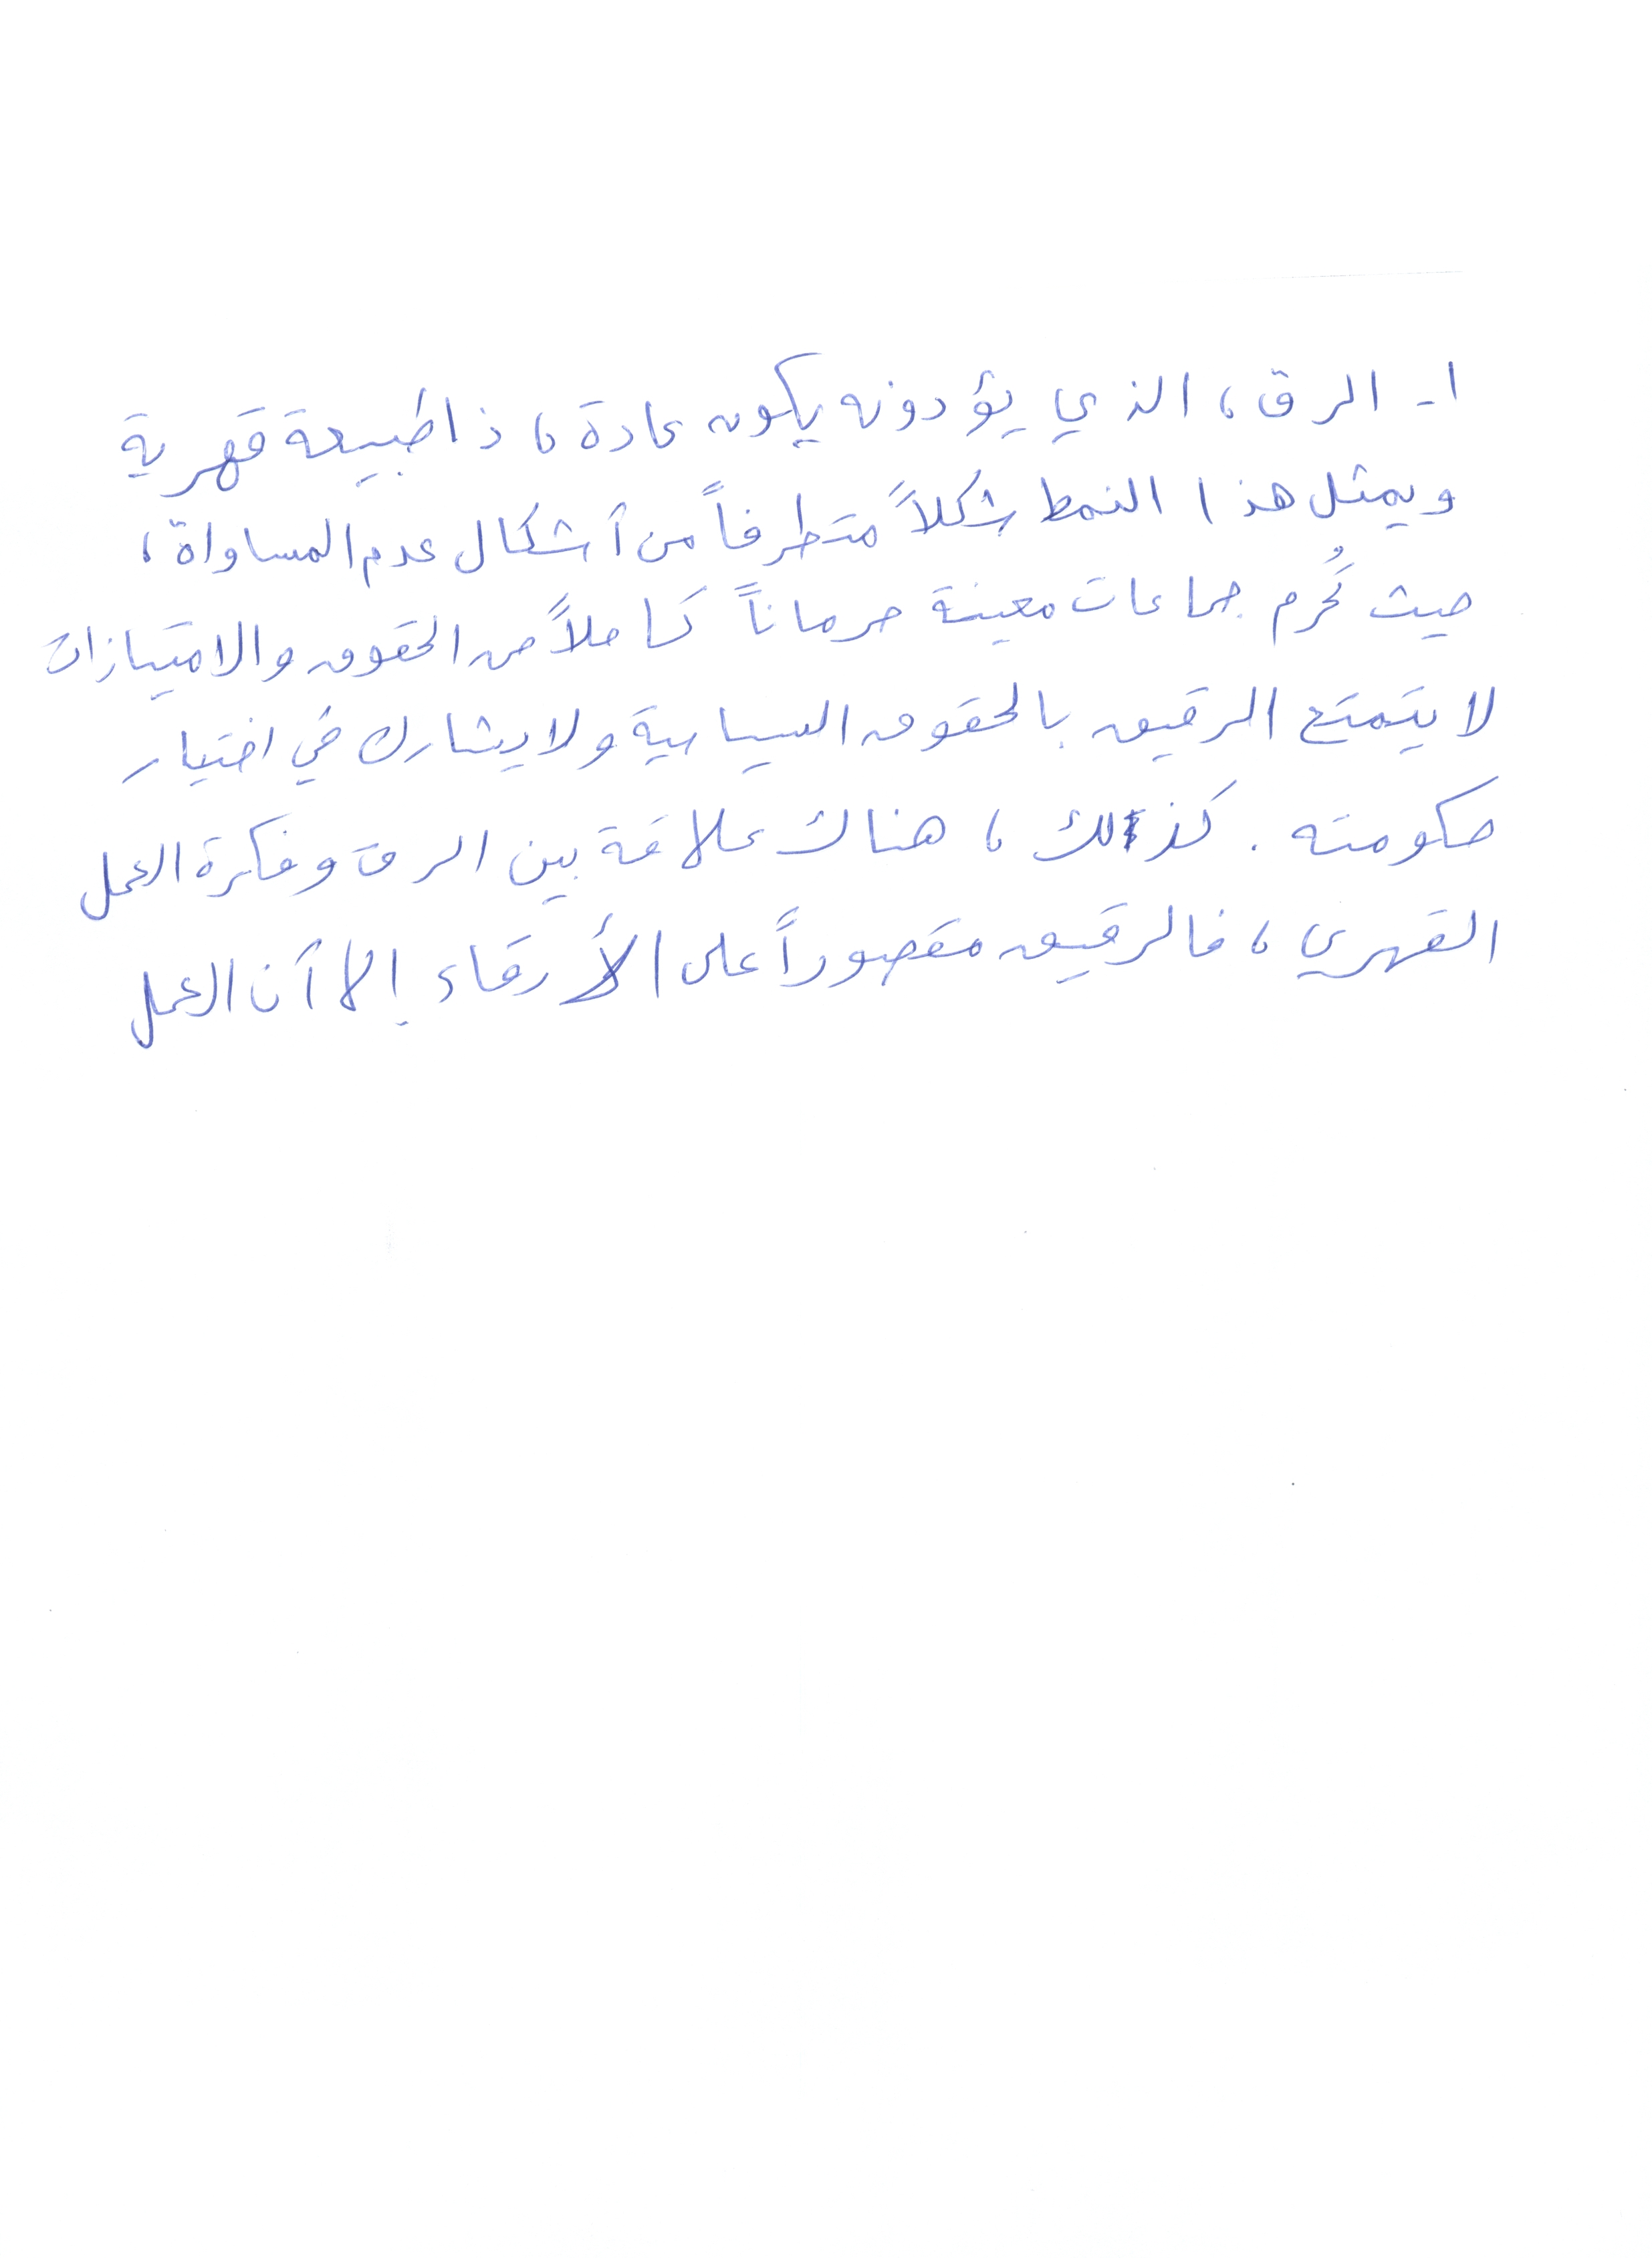 ١- الرق، الذي يؤدونه يكون عادة، ذا طبيعة قهرية
ويمثل هذا النمط شكلاً متطرفاً من أشكال عدم المساواة،
حيث تُحرم جماعات معينة حرماناً كاملاً من الحقوق والامتيازات
لا يتمتع الرقيق بالحقوق السياسية ولا يشارك في اختيار
حكومته. كذلك، هناك علاقة بين الرق وفكرة العمل
القهري، فالرقيق مقصوراً على الأرقاء إلا أن العمل